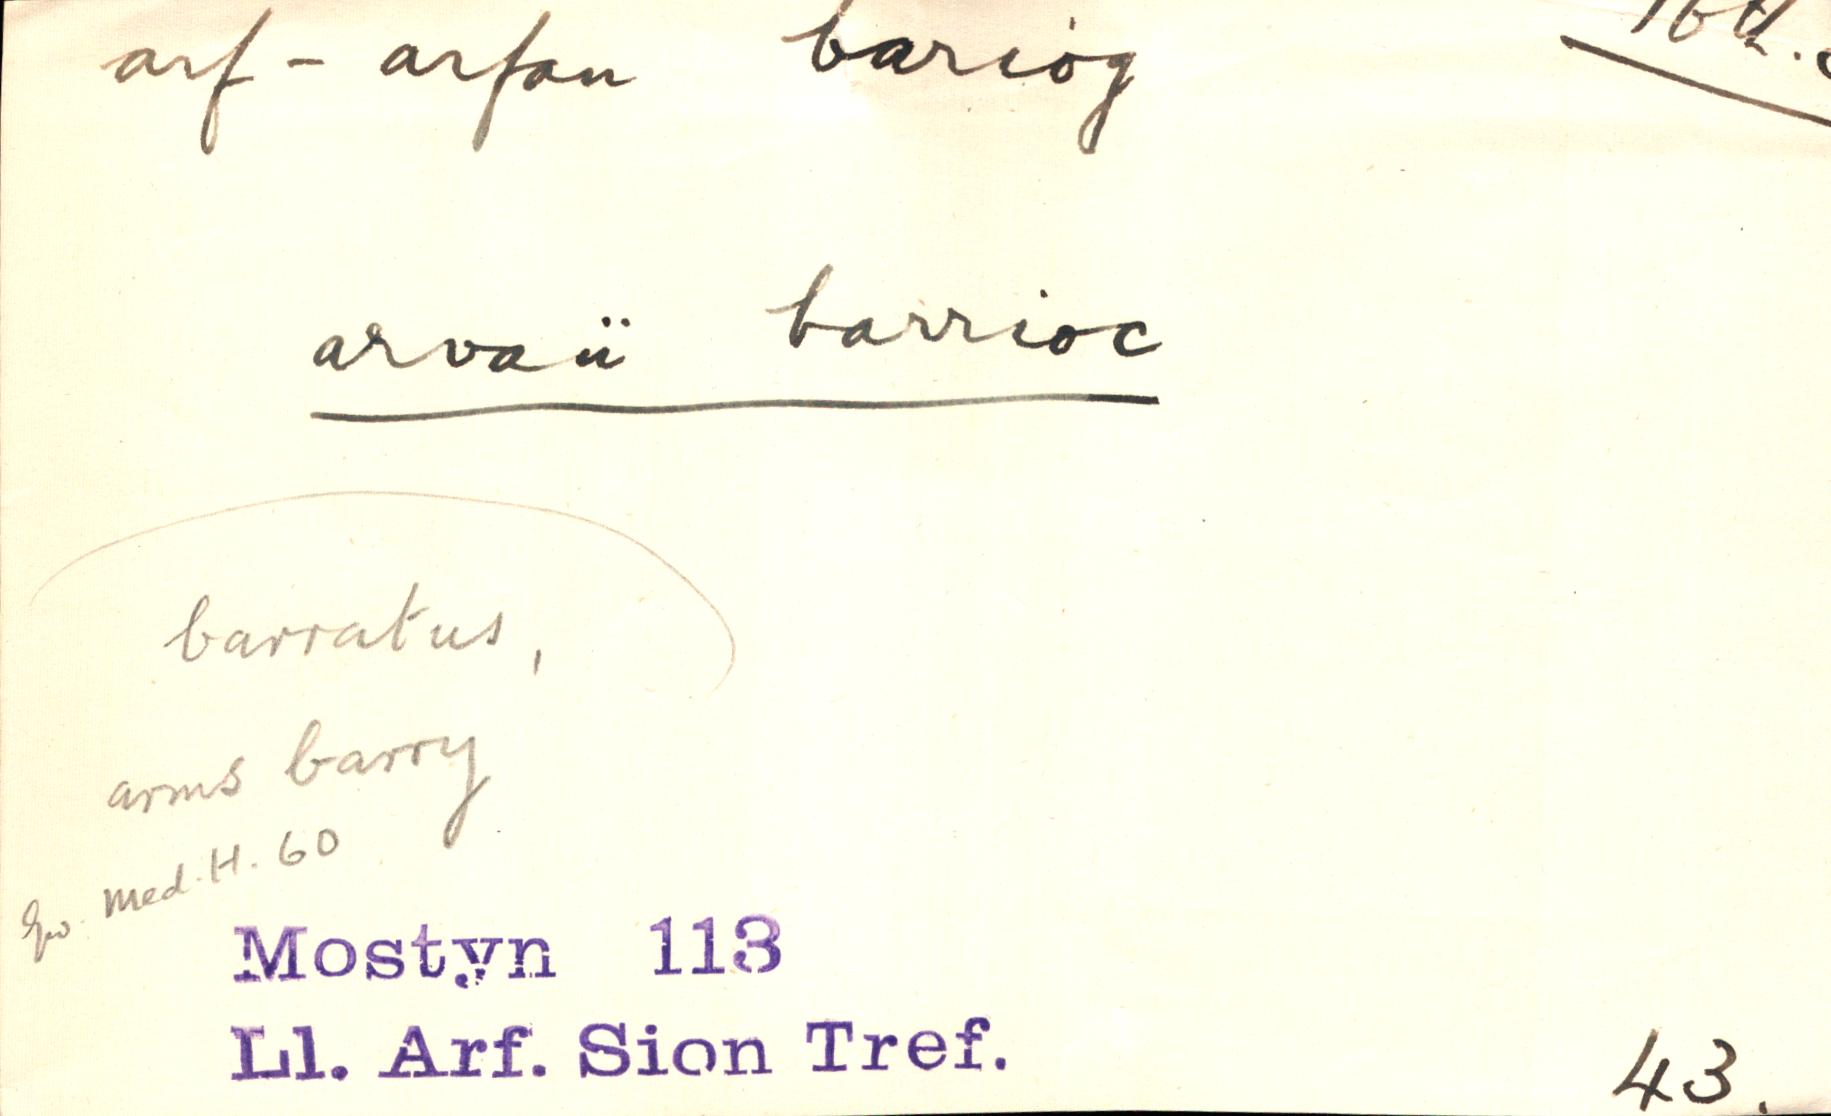 arf - arfau bariog 16th. c
arvaü barrioc
barratus,
arms barry
Med. H. 60
Mostyn 113
Ll. Arf. Sion Tref.
43.